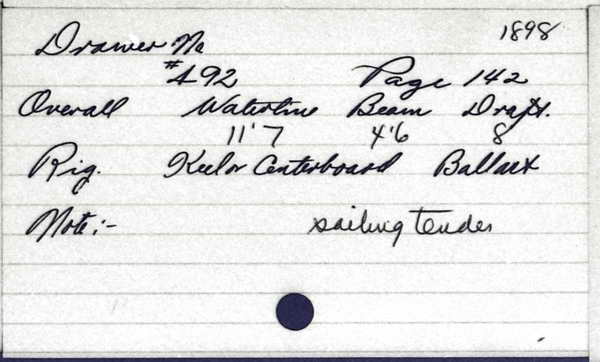 1898
Drawer No
#492 Page 142
Overall Waterline Beam Draft.
11'7 4'6 8
Rig. Keel or Centerboard Ballast
Note:- sailing tender